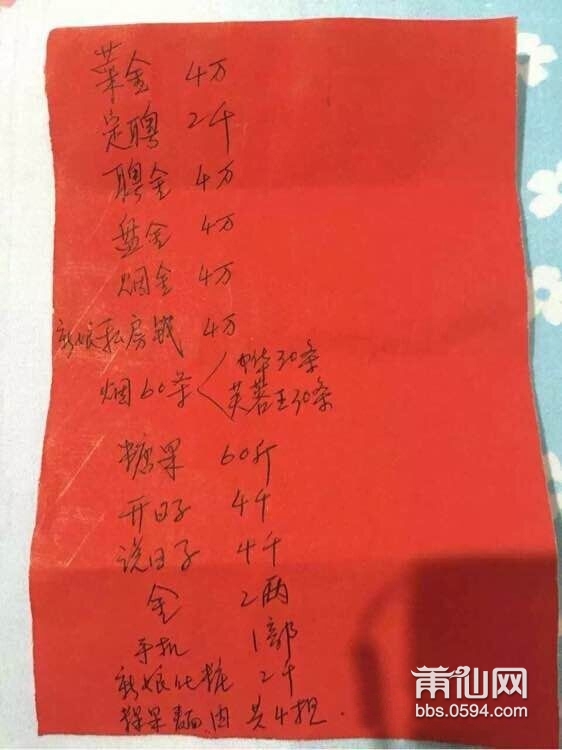 菜金 4万
定聘 2千
聘金 4万
盘金 4万
烟金 4万
新娘私房钱 4万
烟60条 中华30条
芙蓉王30条
糖果 60斤
开日子 4千
说日子 4千
金 2两
手机 1部
新娘化妆 2千
果面肉 共4担.
莆仙网
bbs.0594.com